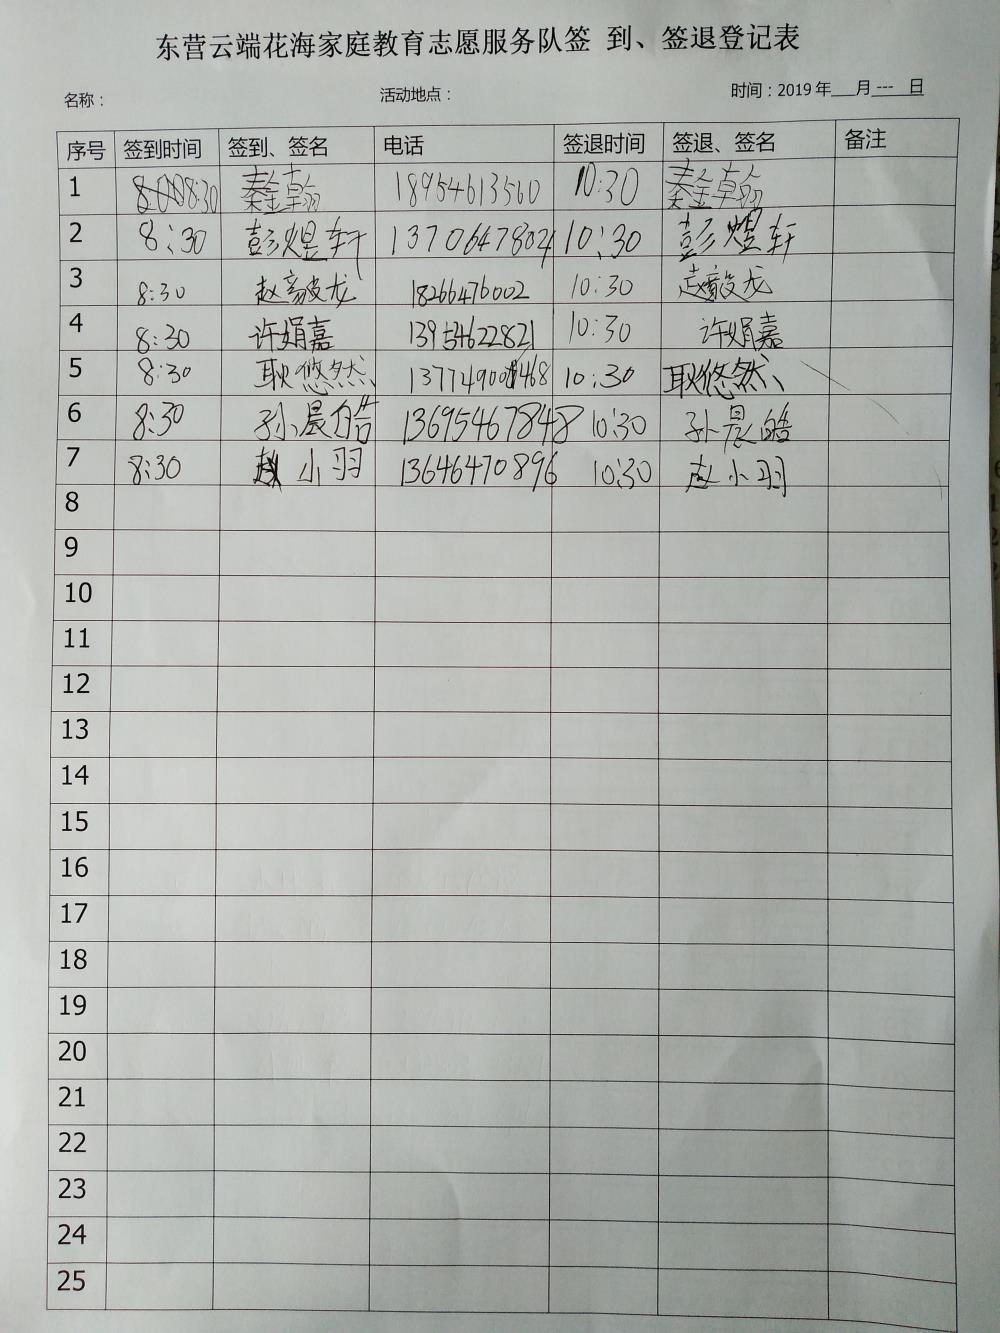 东营云端花海家庭教育志愿服务队签 到、签退登记表
名称： 活动地点： 时间：2019年___月---_日
序号 签到时间 签到、签名 电话 签退时间 签退、签名 备注
1 8:30 秦翰 18954613560 10:30 秦翰
2 8:30 彭煜轩 1370647804 10:30 彭煜轩
3 8:30 赵毅龙 18266476002 10:30 赵毅龙
4 8:30 许娟嘉 13954622821 10:30 许娟嘉
5 8:30 耿悠然 10:30 耿悠然
6 8:30 孙晨皓 13695467848 10:30 孙晨皓
7 8:30 赵小羽 13646470896 10:30 赵小羽
8
9
10
11
12
13
14
15
16
17
18
19
20
21
22
23
24
25